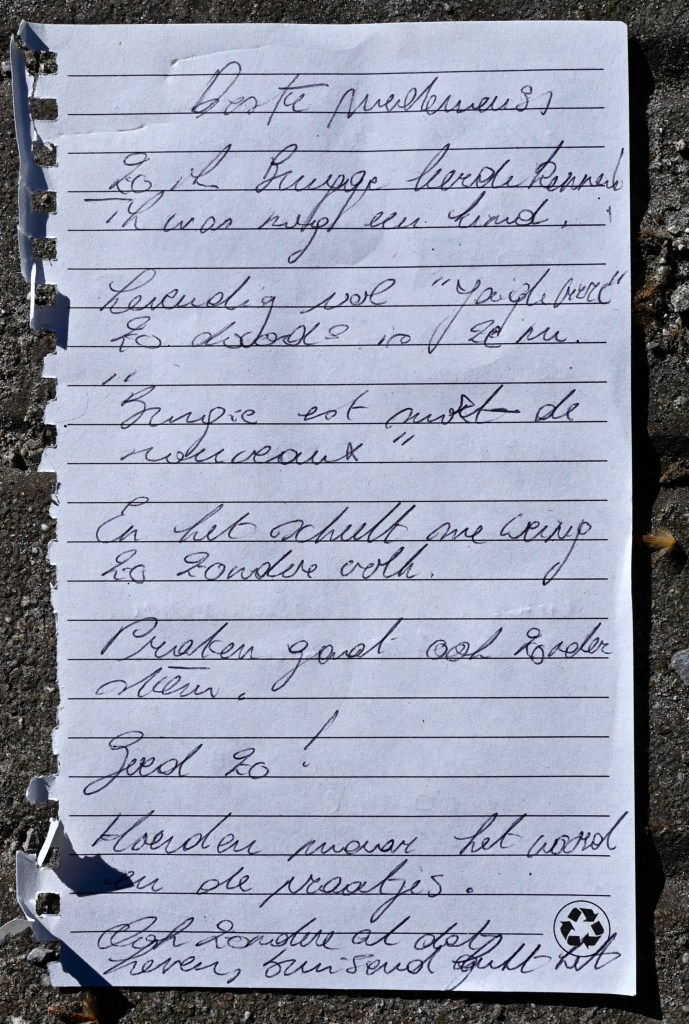 Beste medemens
Zo ik Brugge leerde kennen
ik was nog een kind,
Levendig vol
Zo doods is ze nu.
"Brugge est mort de
nouveaux"
En het scheelt me weinig
Zo zonder volk.
Praten gaat ook zonder
stem.
Goed zo!
Houden maar het woord
en de praatjes.
Ook zondere al dat
leven, bruisend het